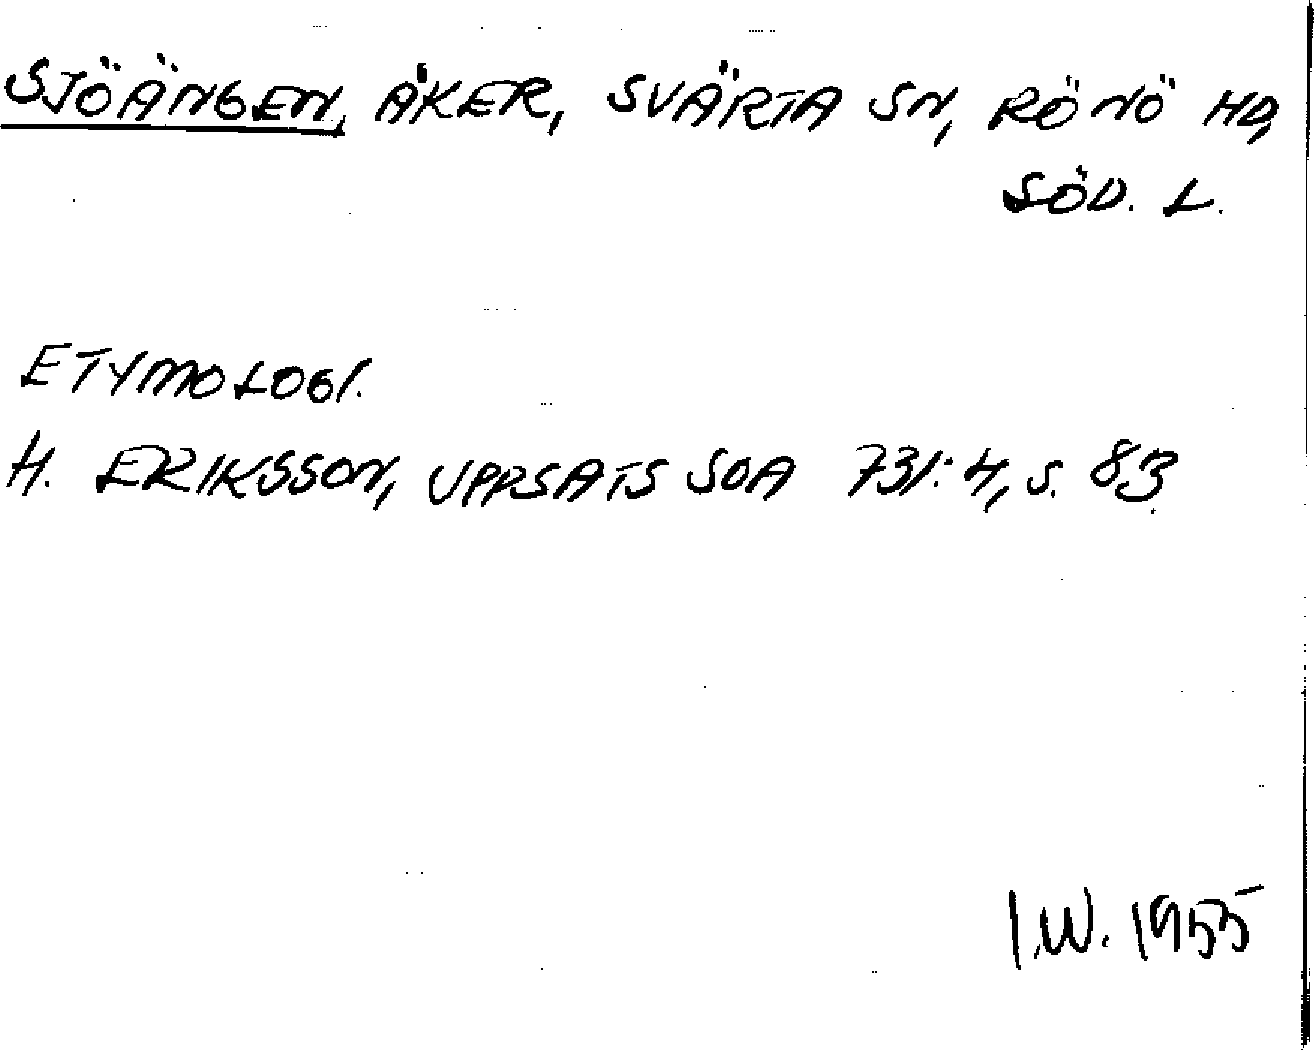 SJÖÄNGEN, ÅKER, SVÄRTA SN, RÖNÖ HD,
SÖD. L.
ETYMOLOGI.
H. ERIKSSON, UPPSATS SOA 731:4, S. 83.
I.W. 1955